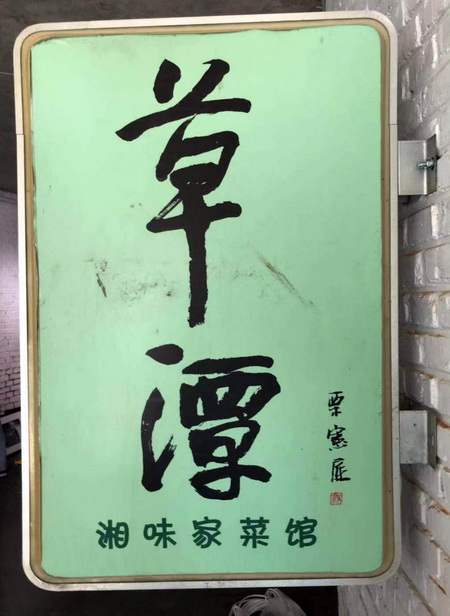 草潭
栗憲庭
湘味家菜馆